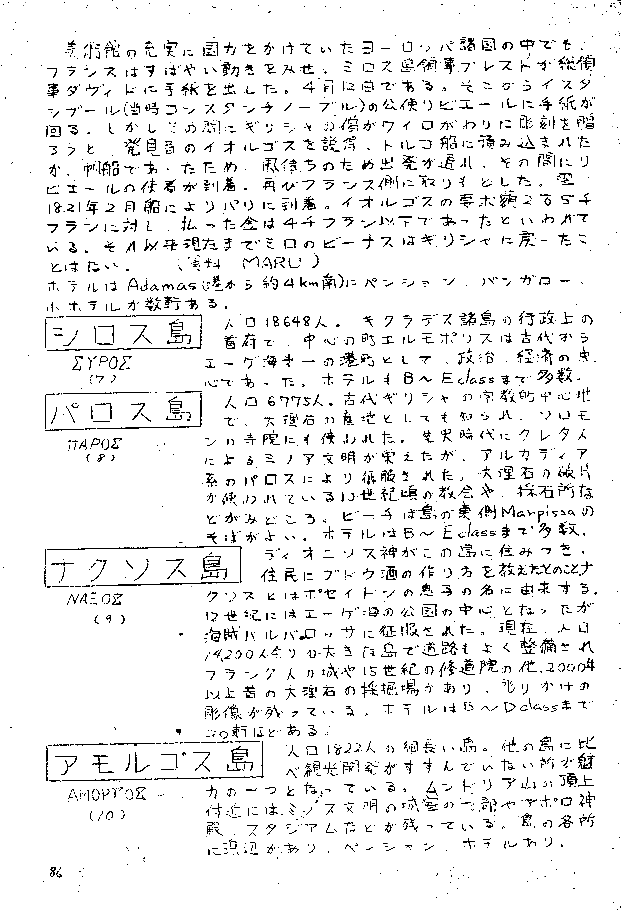 美術館の充実に国力をかけていたヨーロッパ諸国の中でも、
フランスはすばやい動きをみせ、ミロス島領事ブレストが総領
事ダヴィドに手紙を出した。4月12日である。そこからイスタ
ンブール(当時コンスタンチノープル)の公使リビエールに手紙が
回る。しかしその間にギリシャの僧がワイロがわりに彫刻を贈
ろうと、発見者のイオルゴスを説得、トルコ船に積み込まれた
が、帆船であったため、風待ちのため出発が遅れ、その間にリ
ビエールの使者が到着、再びフランス側に取りもどした。翌
1821年2月船によりパリに到着。イオルゴスの要求額2万5千
フランに対し、払った金は4千フラン以下であったといわれて
いる。それ以来現在までミロのビーナスはギリシャに戻ったこ
とはない。 (資料 MARU)
ホテルはAdamas(港から約4km南)にペンション、バンガロー、
小ホテルが数軒ある。
シロス島
ΣΥΡΟΣ
(7)
人口18648人。キクラデス諸島の行政上の
首府で、中心の町エルモポリスは古代から
エーゲ海第一の港町として、政治、経済の中
心であった。ホテルもB〜Eclassまで多数。
パロス島
ΠΑΡΟΣ
(8)
人口6775人。古代ギリシャの宗教的中心地
で、大理石の産地としても知られ、ソロモ
ンの寺院にも使われた。先史時代にクレタ人
によるミノア文明が栄えたが、アルカディア
系のパロスにより征服された。大理石の破片
が使われている10世紀頃の教会や、採石所な
どがみどころ。ビーチは島の東側Marpissaの
そばがよい。ホテルはB〜Eclassまで多数。
ナクソス島
ΝΑΞΟΣ
(9)
ディオニソス神がこの島に住みつき、
住民にブドウ酒の作り方を教えたとのこと。ナ
クソスとはポセイドンの息子の名に由来する。
12世紀にはエーゲ海の公国の中心となったが
海賊バルバロッサに征服された。現在、人口
14,200人余りの大きな島で道路もよく整備され
フランク人の城や15世紀の修道院の他、2000年
以上昔の大理石の採掘場があり、彫りかけの
彫像が残っている。ホテルはB〜Dclassまで
20軒ほどある。
アモルゴス島
ΑΜΟΡΓΟΣ
(10)
人口1822人の細長い島。他の島に比
べ観光開発がすすんでいない所が魅
力の一つとなっている。ムンドリア山の頂上
付近にはミノス文明の城壁の一部やアポロ神
殿、スタジアムなどが残っている。島の各所
に浜辺があり、ペンション、ホテルあり。
86